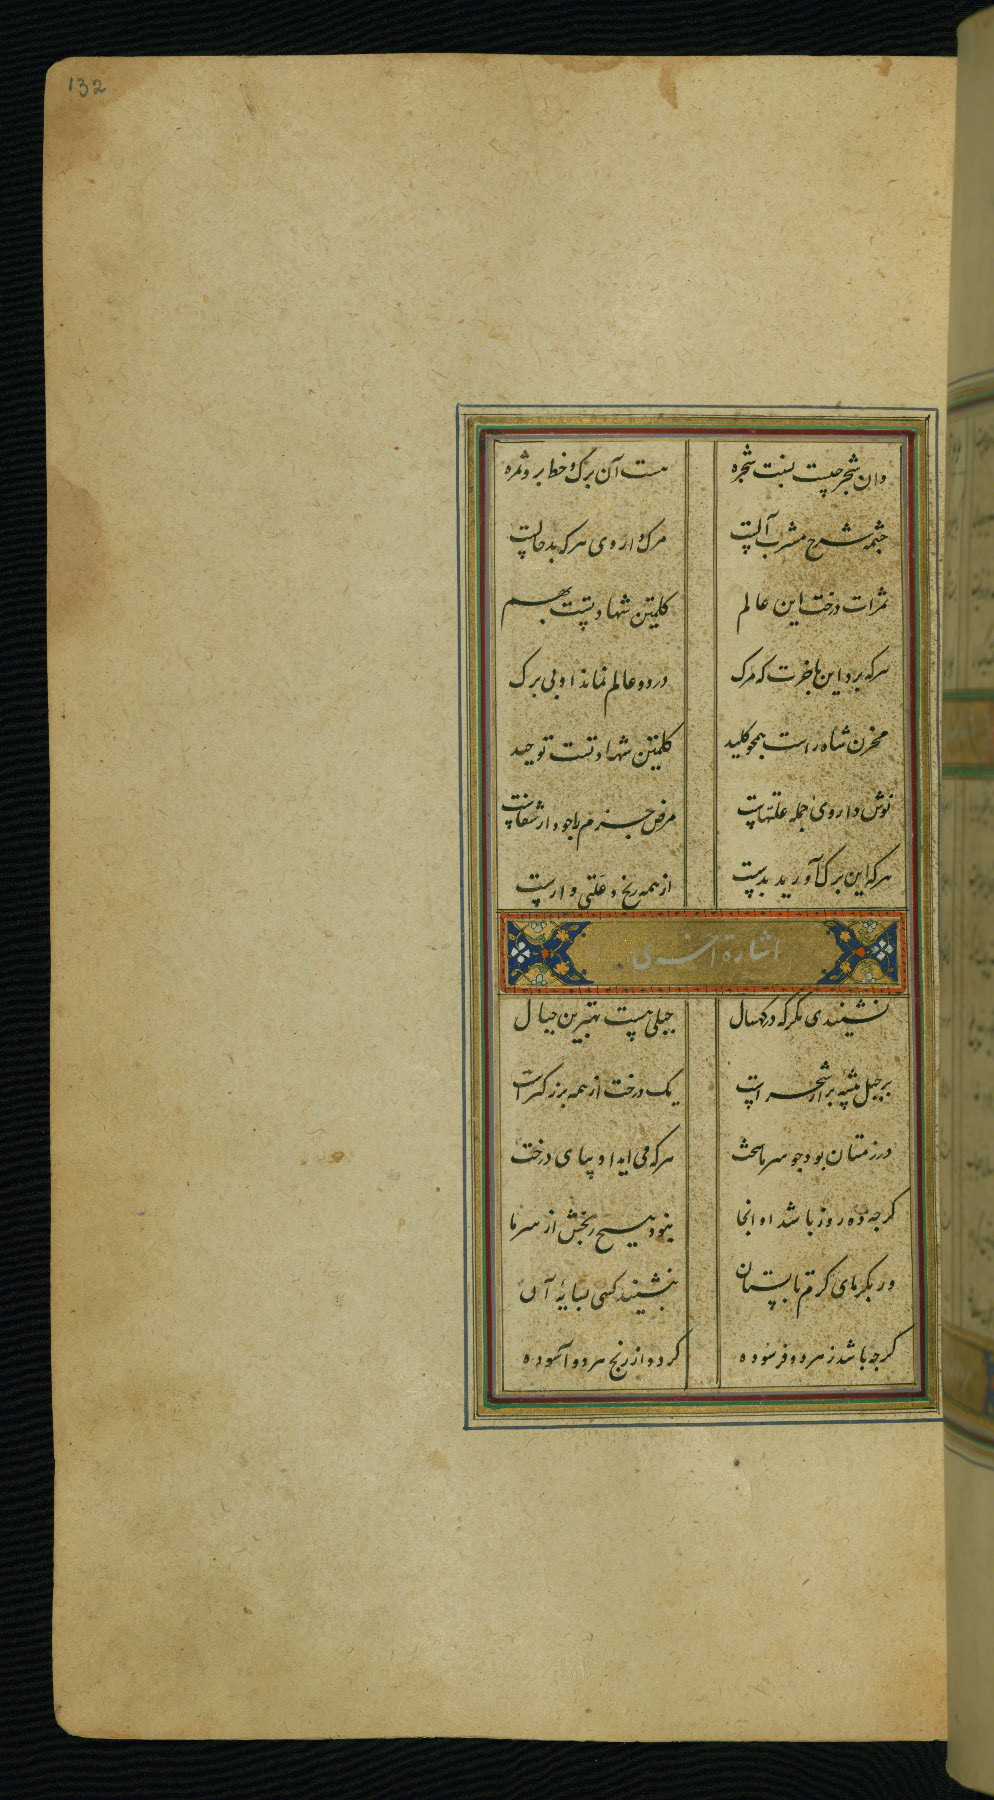 132
وان شجر چیست بنت شجره هست آن برک و خط بر و ثمره
چشمه شرح مشرب آلست مرک داروی هرکه بدحالست
ثمرات درخت این عالم کلمتین شهادتست بهم
هرکه برد این بآخرت که مرک در دو عالم نماند او بی برک
مخزن شاه راست همچو کلید کلمتین شهادتست توحید
نوش داروی جمله علتهاست مرض جرم را جو دار شفاست
هرکه این برک آورید بدست از همه رنج و علتی وارست
اشارة اخری
نشینیدی مکر که در کهسال جبلی هست بهترین جبال
بر جبل بیشه پر از شجر است یک درخت از همه بزرکتر است
در زمستان بود جو سرما سخت هرکه می اید او بپای درخت
کرجه ده روز باشد او انجا نبود هیچ رنجش از سرما
ور بکرمای کرم تابستان بنشیند کسی بسایۀ آن
کرجه باشد ز هر دو فرسوده کردد از رنج هر دو آسوده